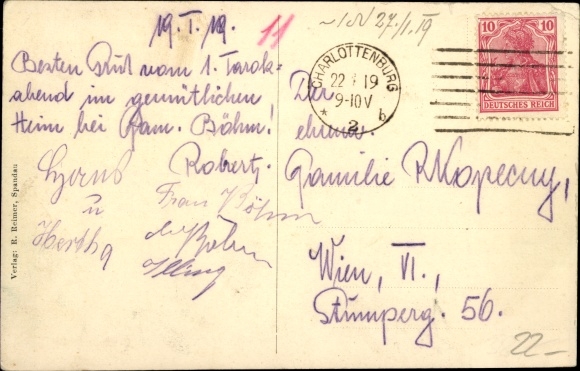 19.I.19.
11
27./I. 19
Besten Gruß vom 1. Tarok-
abend im gemütlichen
Heim bei Fam. Böhm!
Robert.
u
Hertha
Frau Böhm
Böhm
CHARLOTTENBURG
22 1 19
9-10V
* 2 b
10 10
DEUTSCHES REICH
Der
ehrenw.
Familie R Kopecny,
Wien, VI.,
Stumperg. 56.
22–
Verlag: R. Reimer, Spandau